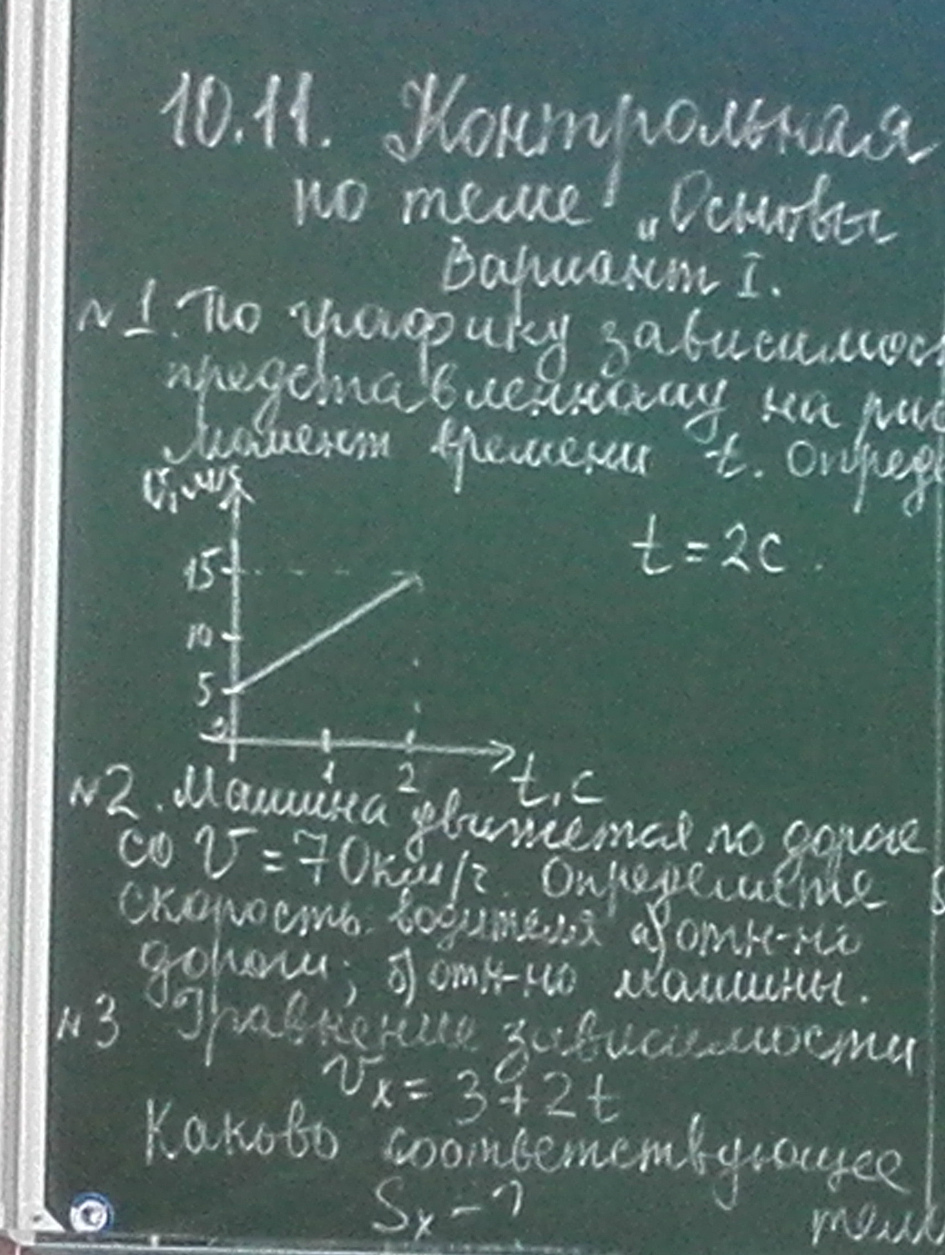 10.11. Контрольная
по теме "Основы
Вариант I.
№1. По графику зависимос
представленному на рис
момент времени t. Опреде
v, м/с
t = 2с.
15
10
5
0
1
2
t, с
№2. Машина движется по дороге
со v = 70км/ч. Определите
скорость водителя а) отн-но
дороги; б) отн-но машины.
№3 Уравнение зависимости
vx = 3 + 2t
Каково соответствующее
Sx - ?
тела